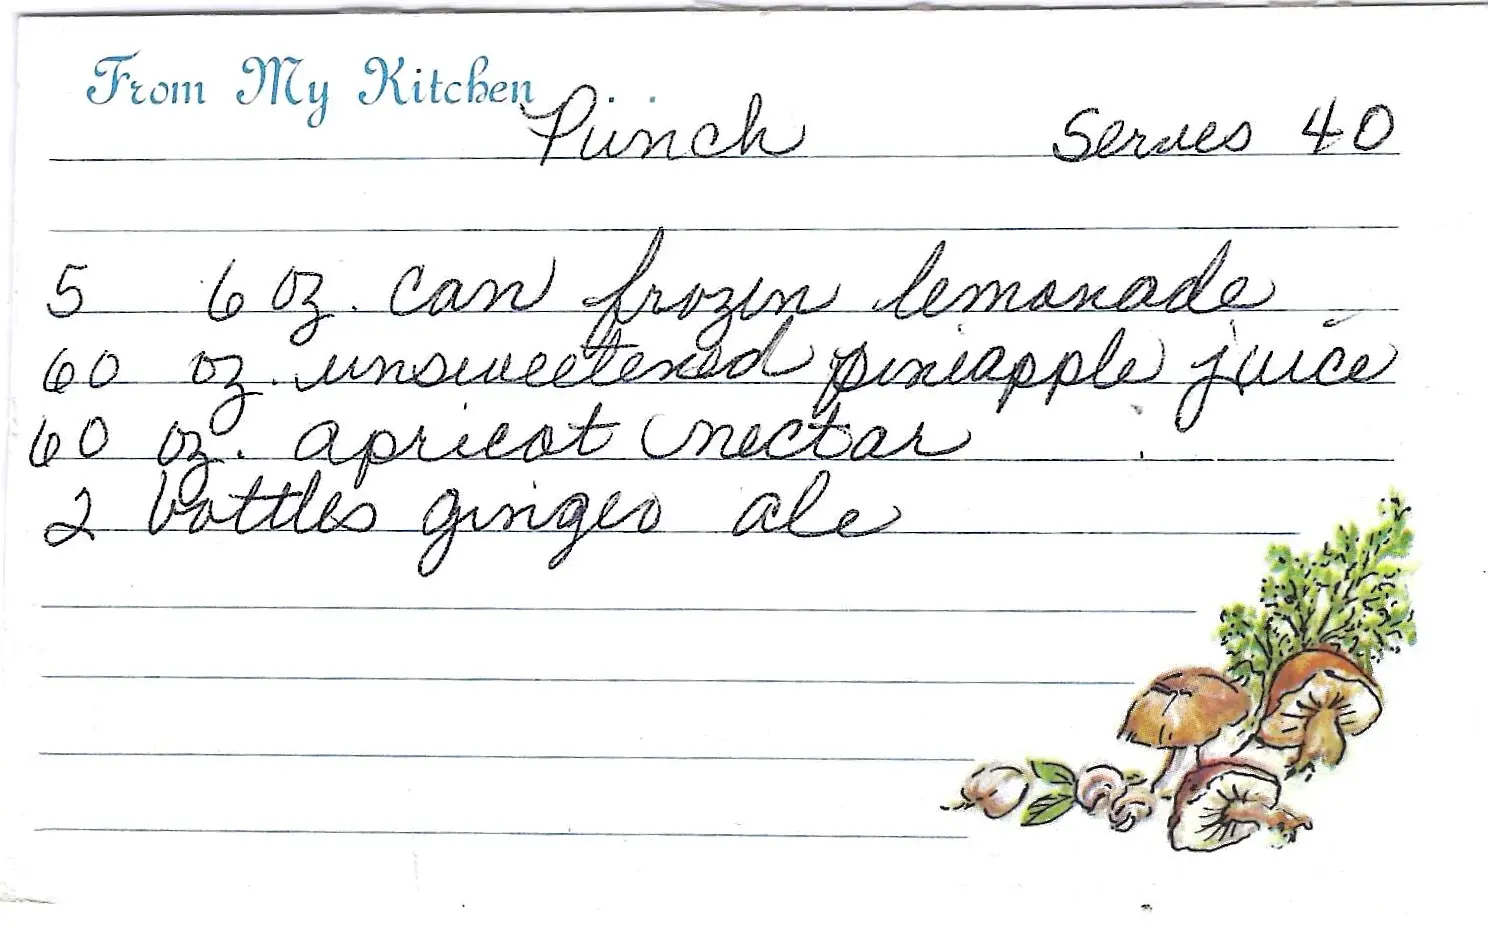 From My Kitchen . . .
Punch Serves 40
5 6 oz. can frozen lemonade
60 oz. unsweetened pineapple juice
60 oz. apricot nectar
2 bottles ginger ale